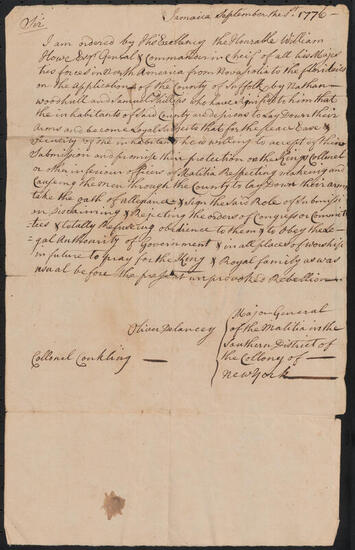 Jamaica September the 1st. 1776 —
Sir
I am ordered by His Excellency the Honrable William
Howe Esqr. General & Commander in Cheif of all his Majes
ties forces in North America from Novascotia to the floridas
on the Application of the County of Suffolk by Nathan
woodhull and Samuel Philips who have signified to him that
the inhabitants of said County are desirous to Lay Down their
Arms and become Loyal Subjects that for the peace Ease &
Security of the inhabitants he is willing to accept of their
Submission and promise them protection on the
or other inferiour officers of Malitia Respecting
Causeing the men through the County to lay Down their arms
take the oath of allegance & sign the said Role of Submissi
on Disclaiming & Rejecting the orders of Congress or Commit
ties & totally Refuseing obedience to them & to obey the Le
=gal Authority of Government & in all places of worship
in future to pray for the King & Royal family as was
usual before the present unprovoked Rebellion —
Oliver Delancey
Major General
of the Malitia in the
Southern District of
the Collony of —
New York —
Collonel Conkling —